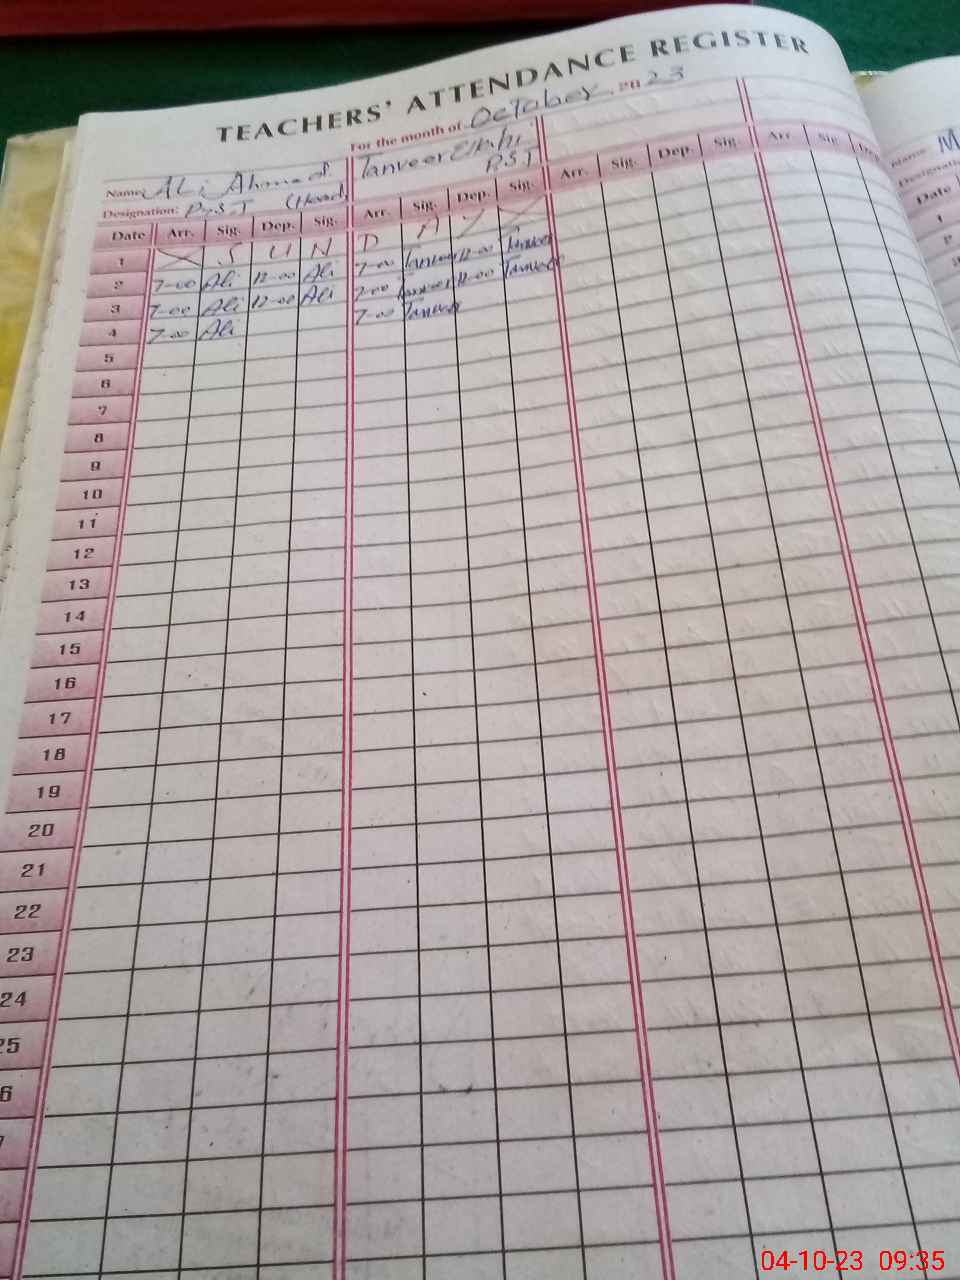 TEACHERS' ATTENDANCE REGISTER
For the month of October 2023
Name: Ali Ahmed
Designation: P.S.T (Head)
Tanveer
P.S.T
Date Arr. Sig. Dep. Sig. Arr. Sig. Dep. Sig. Arr. Sig. Dep. Sig. Arr. Sig. Dep.
1 X S U N D A Y X
2 7-00 Ali 12-00 Ali 7-00 Tanveer 12-00 Tanveer
3 7-00 Ali 12-00 Ali 7-00 Tanveer 12-00 Tanveer
4 7-00 Ali 7-00 Tanveer
5
6
7
8
9
10
11
12
13
14
15
16
17
18
19
20
21
22
23
24
25
6
7
Name M
Designation
Date
1
2
04-10-23 09:35